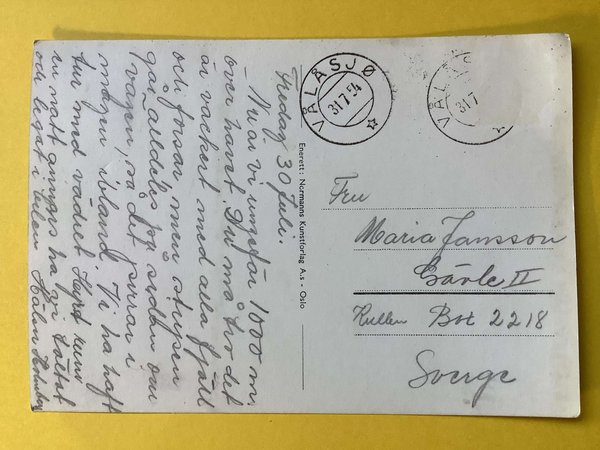 Fredag 30 Juli.
Nu är vi ungefär 1000 m.
över havet. Du må tro det
är vackert med alla fjäll
och forsar men stigen
går alldeles på sidan om
vägen, så det pirrar i
magen ibland. Vi ha haft
tur med vädret
en natt ha
och legat i Hälsn
Enerett: Normanns Kunstforlag A.s - Oslo
VÅLÅSJØ
31.7.54
VÅLÅS
31.7
Fru
Maria Jansson
Gävle II
Kullen Box 2218
Sverge